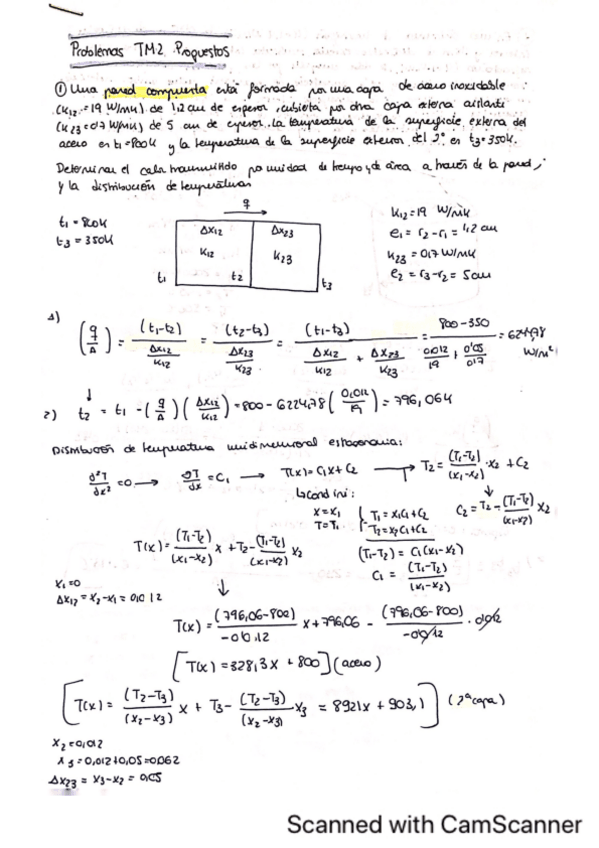 Problemas TM2 Propuestos
① Una pared compuesta está formada por una capa de acero inoxidable
(K12 = 19 W/mK) de 1,2 cm de espesor, cubierta por otra capa externa aislante
(K23 = 0,7 W/mK) de 5 cm de espesor. La temperatura de la superficie externa del
acero es t1 = 800K y la temperatura de la superficie exterior del 2º es t3 = 350K.
Determinar el calor transmitido por unidad de tiempo y de área a través de la pared,
y la distribución de temperaturas
q
t1 = 800K
t3 = 350K
Δx12 Δx23
K12 K23
t1 t2 t3
K12 = 19 W/mK
e1 = r2 - r1 = 1,2 cm
K23 = 0,7 W/mK
e2 = r3 - r2 = 5cm
1) (q/A) = (t1-t2) / (Δx12/K12) = (t2-t3) / (Δx23/K23) = (t1-t3) / (Δx12/K12 + Δx23/K23) = (800-350) / (0,012/19 + 0'05/0,7) = W/m²
2) t2 = t1 - (q/A) (Δx12/K12) = 800 - 6224,78 (0,012/19) = 796,064
Distribución de temperatura unidimensional estacionaria:
d²T/dx² = 0 → ∂T/∂x = C1 → T(x) = C1x + C2 → T2 = (T1-T2)/(x1-x2) · x2 + C2
↳ cond ini:
x = x1
T = T1
T1 = x1C1 + C2
T2 = x2C1 + C2
(T1-T2) = C1(x1-x2)
C1 = (T1-T2)/(x1-x2)
C2 = T2 - (T1-T2)/(x1-x2) x2
T(x) = (T1-T2)/(x1-x2) x + T2 - (T1-T2)/(x1-x2) x2
x1 = 0
Δx12 = x2 - x1 = 0,012
T(x) = (796,06-800)/-0'012 x + 796,06 - (796,06-800)/-0'012 · 0,012
[T(x) = 328,3x + 800] (acero)
[T(x) = (T2-T3)/(x2-x3) x + T3 - (T2-T3)/(x2-x3) x3 = 8921x + 903,1] (2ª capa)
x2 = 0,012
x3 = 0,012+0,05 = 0,062
Δx23 = x3 - x2 = 0,05
Scanned with CamScanner